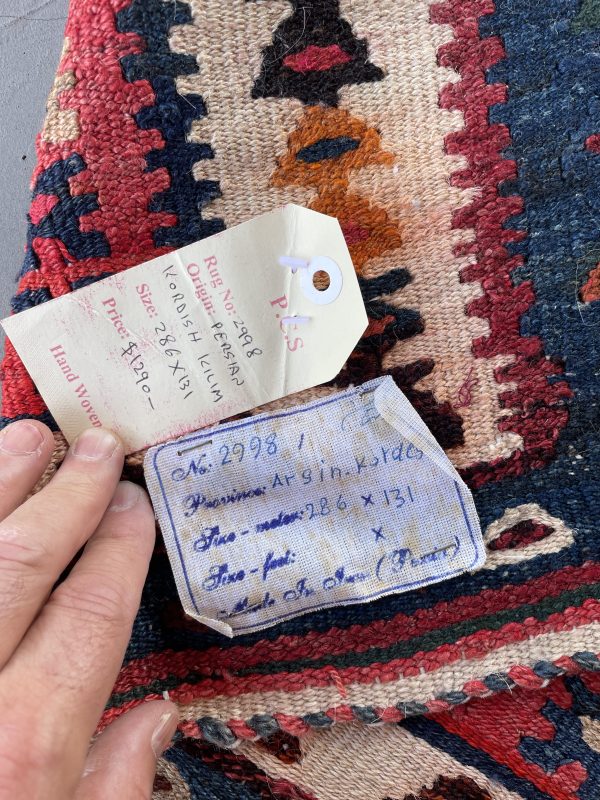 P.E.S
Rug No: 2998
Origin: PERSIAN
KORDISH KILIM
Size: 286X131
Price: $1290-
Hand Woven
No: 2998 /
Province: Arsin. Kordes
Size - meter: 286 x 131
Size - feet: x
Made In Iran (Persia)